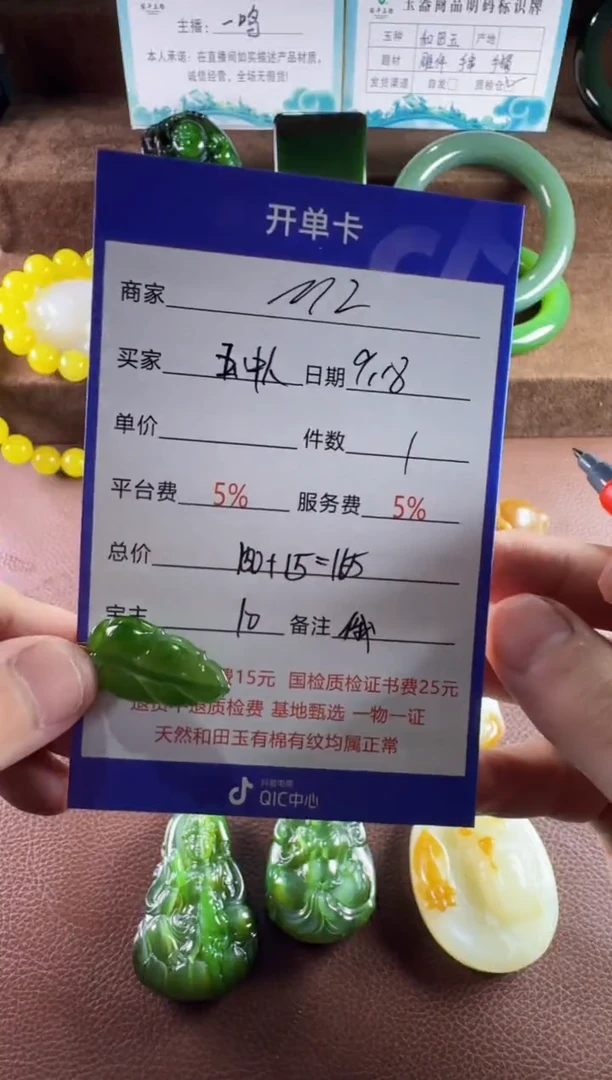 主播: 一鸣
本人承诺: 在直播间如实描述产品材质,
诚信经营, 全场无假货!
玉器商品明码标识牌
玉种 和田玉 产地
题材 雕件 手串 手镯
发货渠道 自发 质检仓
开单卡
商家
买家 日期 9.18
单价 件数 1
平台费 5% 服务费 5%
总价 150+15=165
宝主 10 备注
费15元 国检质检证书费25元
退货不退质检费 基地甄选 一物一证
天然和田玉有棉有纹均属正常
抖音电商
QIC中心